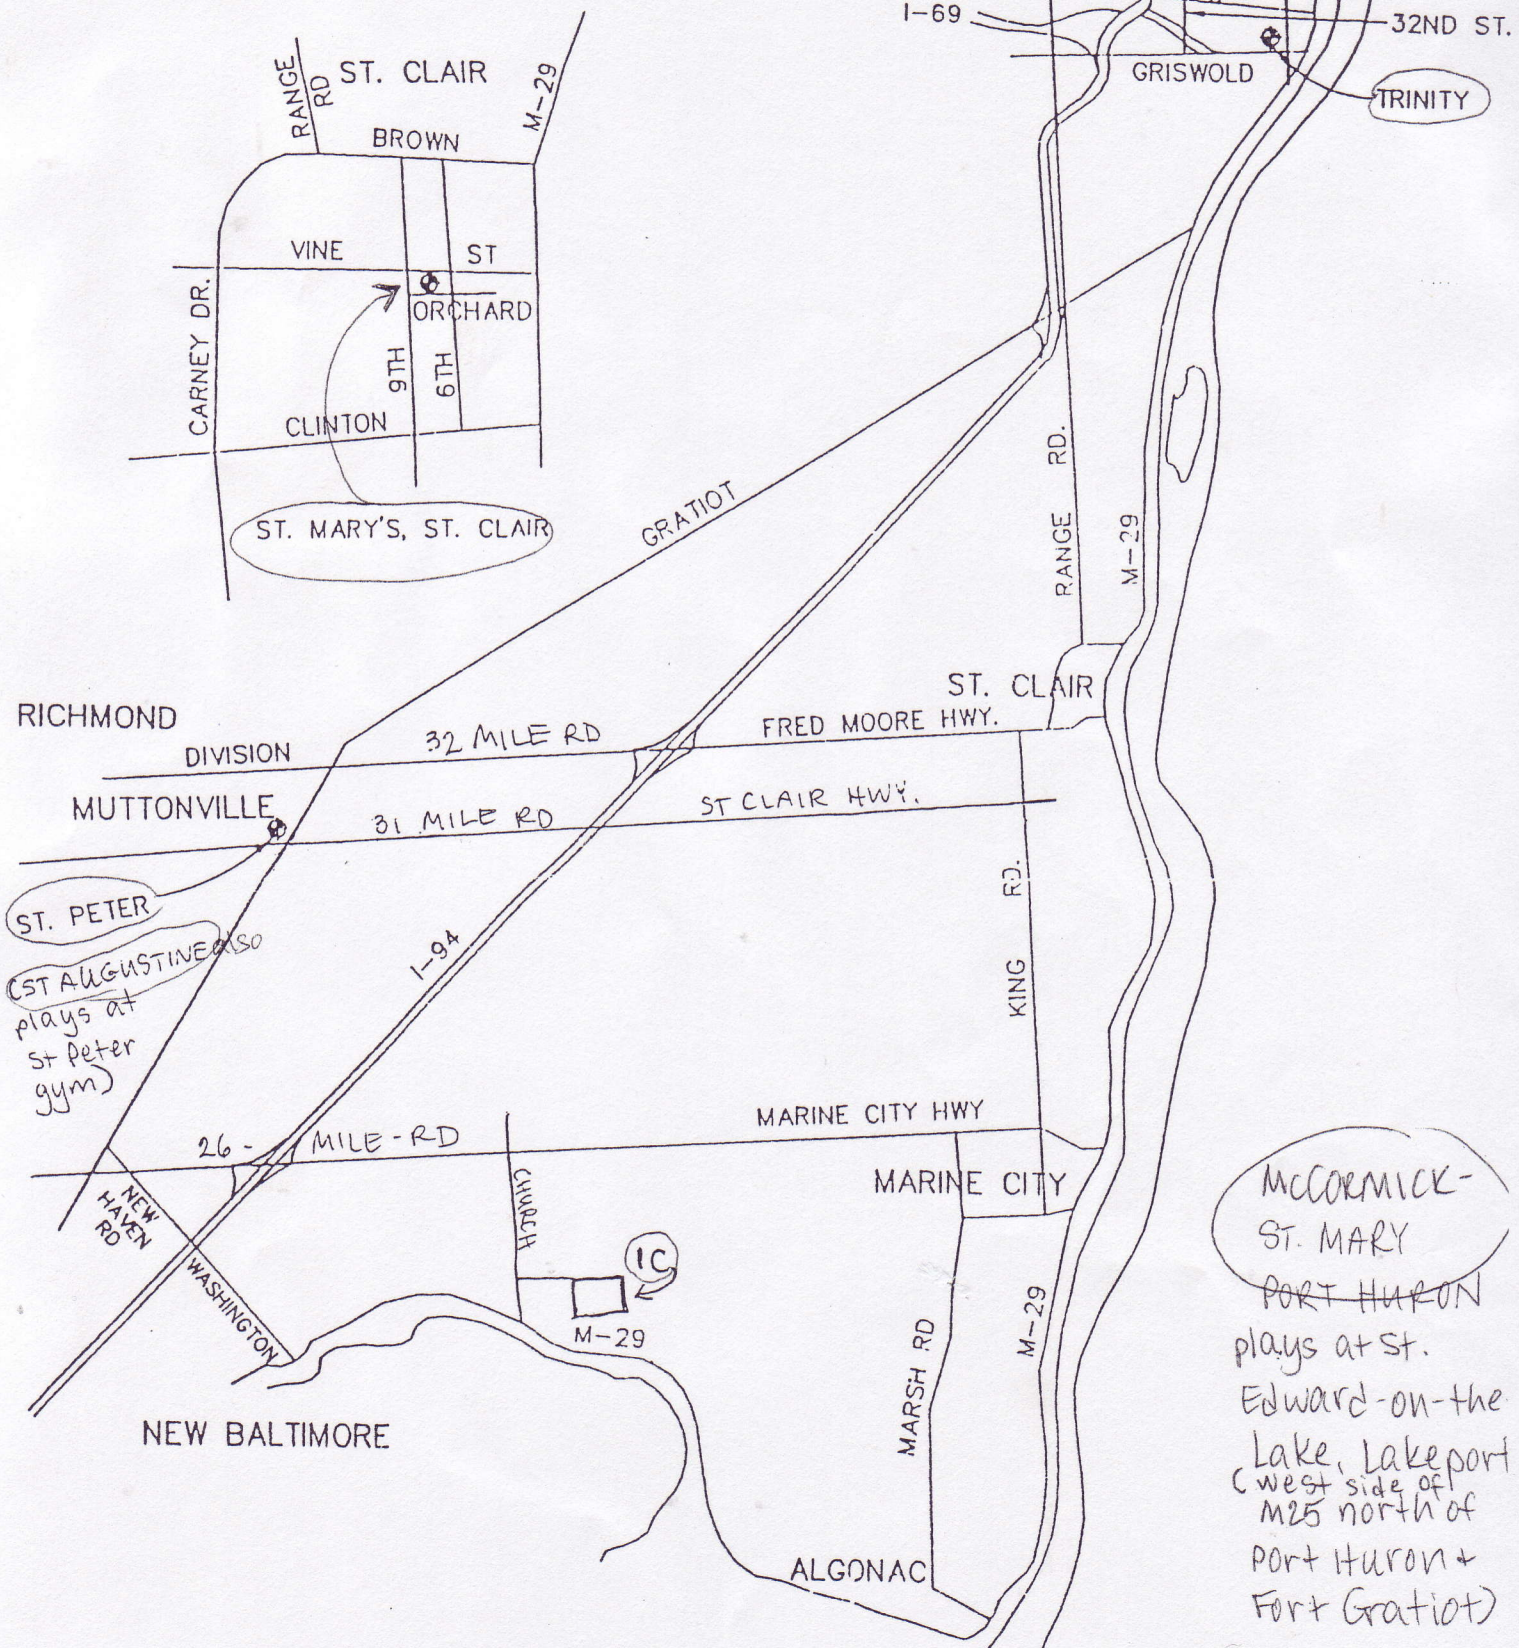 I-69
32ND ST.
GRISWOLD
TRINITY
RANGE
RD
ST. CLAIR
M-29
BROWN
VINE ST
ORCHARD
CARNEY DR.
9TH
6TH
CLINTON
ST. MARY'S, ST. CLAIR
GRATIOT
RANGE RD.
M-29
ST. CLAIR
RICHMOND
DIVISION
32 MILE RD
FRED MOORE HWY.
MUTTONVILLE
31 MILE RD
ST CLAIR HWY.
KING RD.
ST. PETER
(ST AUGUSTINE also
plays at
St Peter
gym)
I-94
26 - MILE - RD
MARINE CITY HWY
MARINE CITY
NEW
HAVEN
RD
WASHINGTON
CHURCH
IC
M-29
MARSH RD
M-29
NEW BALTIMORE
ALGONAC
McCORMICK-
ST. MARY
PORT HURON
plays at St.
Edward-on-the
Lake, Lakeport
(west side of
M25 north of
Port Huron +
Fort Gratiot)